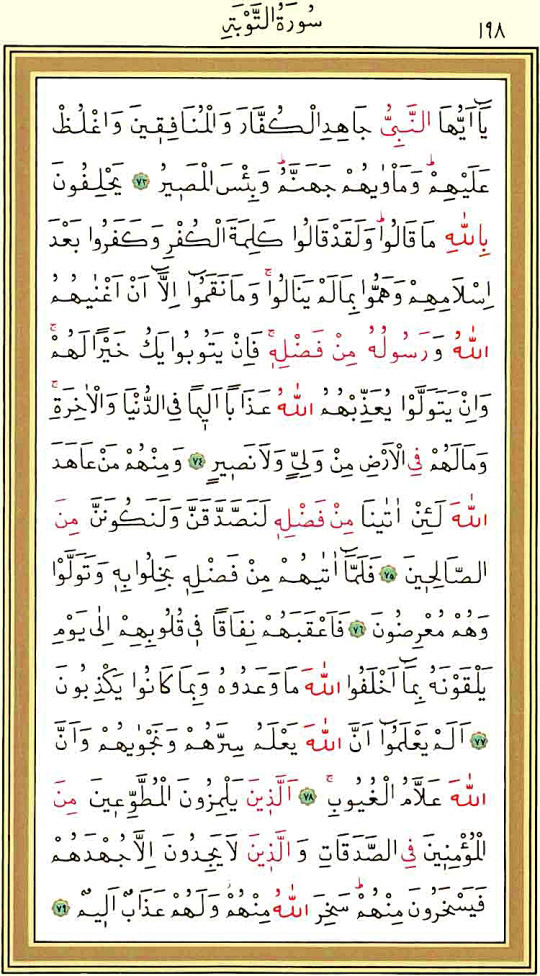 سُورَةُ التَّوْبَةِ ١٩٨
يَٓا اَيُّهَا النَّبِيُّ جَاهِدِ الْكُفَّارَ وَالْمُنَافِقٖينَ وَاغْلُظْ
عَلَيْهِمْۜ وَمَأْوٰيهُمْ جَهَنَّمُۜ وَبِئْسَ الْمَصٖيرُ ﴿٧٣﴾ يَحْلِفُونَ
بِاللّٰهِ مَا قَالُواۜ وَلَقَدْ قَالُوا كَلِمَةَ الْكُفْرِ وَكَفَرُوا بَعْدَ
اِسْلَامِهِمْ وَهَمُّوا بِمَا لَمْ يَنَالُواۚ وَمَا نَقَمُٓوا اِلَّٓا اَنْ اَغْنٰيهُمُ
اللّٰهُ وَرَسُولُهُ مِنْ فَضْلِهٖۚ فَاِنْ يَتُوبُوا يَكُ خَيْرًا لَهُمْۚ
وَاِنْ يَتَوَلَّوْا يُعَذِّبْهُمُ اللّٰهُ عَذَابًا اَلٖيمًا فِي الدُّنْيَا وَالْاٰخِرَةِۚ
وَمَا لَهُمْ فِي الْاَرْضِ مِنْ وَلِيٍّ وَلَا نَصٖيرٍ ﴿٧٤﴾ وَمِنْهُمْ مَنْ عَاهَدَ
اللّٰهَ لَئِنْ اٰتٰينَا مِنْ فَضْلِهٖ لَنَصَّدَّقَنَّ وَلَنَكُونَنَّ مِنَ
الصَّالِحٖينَ ﴿٧٥﴾ فَلَمَّٓا اٰتٰيهُمْ مِنْ فَضْلِهٖ بَخِلُوا بِهٖ وَتَوَلَّوْا
وَهُمْ مُعْرِضُونَ ﴿٧٦﴾ فَاَعْقَبَهُمْ نِفَاقًا فٖي قُلُوبِهِمْ اِلٰى يَوْمِ
يَلْقَوْنَهُ بِمَٓا اَخْلَفُوا اللّٰهَ مَا وَعَدُوهُ وَبِمَا كَانُوا يَكْذِبُونَ
﴿٧٧﴾ اَلَمْ يَعْلَمُٓوا اَنَّ اللّٰهَ يَعْلَمُ سِرَّهُمْ وَنَجْوٰيهُمْ وَاَنَّ
اللّٰهَ عَلَّامُ الْغُيُوبِۚ ﴿٧٨﴾ اَلَّذٖينَ يَلْمِزُونَ الْمُطَّوِّعٖينَ مِنَ
الْمُؤْمِنٖينَ فِي الصَّدَقَاتِ وَالَّذٖينَ لَا يَجِدُونَ اِلَّا جُهْدَهُمْ
فَيَسْخَرُونَ مِنْهُمْۜ سَخِرَ اللّٰهُ مِنْهُمْۘ وَلَهُمْ عَذَابٌ اَلٖيمٌ ﴿٧٩﴾